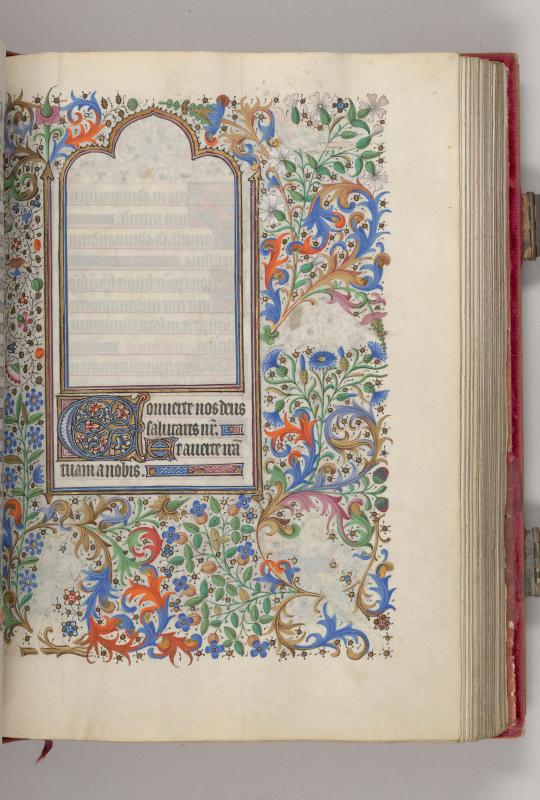 Converte nos deus
salutaris nr̄
Et averte irā
tuam a nobis.